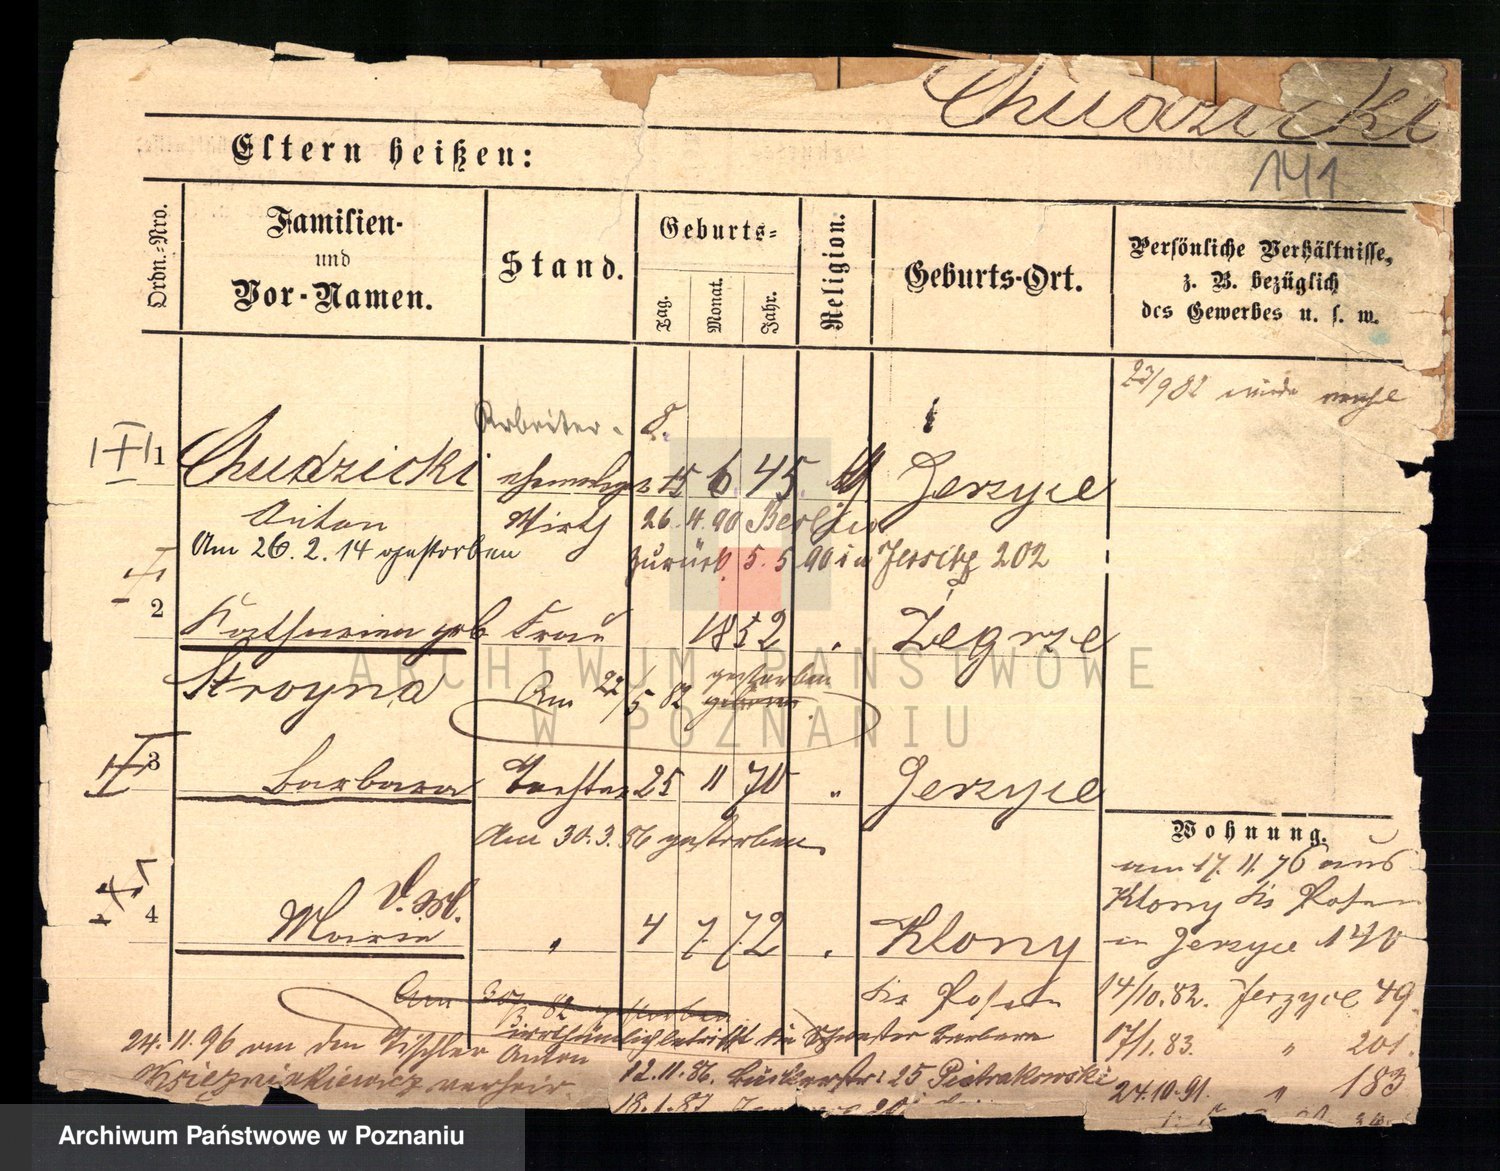 Chudzicki
141
Eltern heißen:
Ordn.-Nro.
Familien-
und
Vor-Namen.
Stand.
Geburts-
Tag.
Monat.
Jahr.
Religion.
Geburts-Ort.
Persönliche Verhältnisse,
z. B. bezüglich
des Gewerbes u. s. w.
23/9 82
Arbeiter.
1 Chudzicki ehemaliger 15 6. 45. Jerzyce
Anton Wirth 26. 4. 90 Berlin
Am 26. 2. 14 gestorben zurück 5. 5 90 in Jersitz 202
2 Katharina geb Frau 1852 " Żegrze
Stroyna Am 22/5 82 gestorben
3 Barbara Tochter 25 11 70 " Jerzyce
Am 30. 3. 86 gestorben
Wohnung.
am 17. 11. 76 aus
Klony Krs Posen
in Jerzyce 140
4 Marie " 4 7. 72 " Klony
Krs Posen
14/10. 82. Jerzyce 49.
Am 30/3. 82 gestorben
irrthümlich betrifft die Schwester Barbara
17/1. 83. " 201.
24. 11. 96 an den Tischler Anton
verheir.
12. 11. 86. 25 Pietrakowski
24. 10. 91. " 183
18. 1. 87.
ARCHIWUM PAŃSTWOWE
W POZNANIU
Archiwum Państwowe w Poznaniu